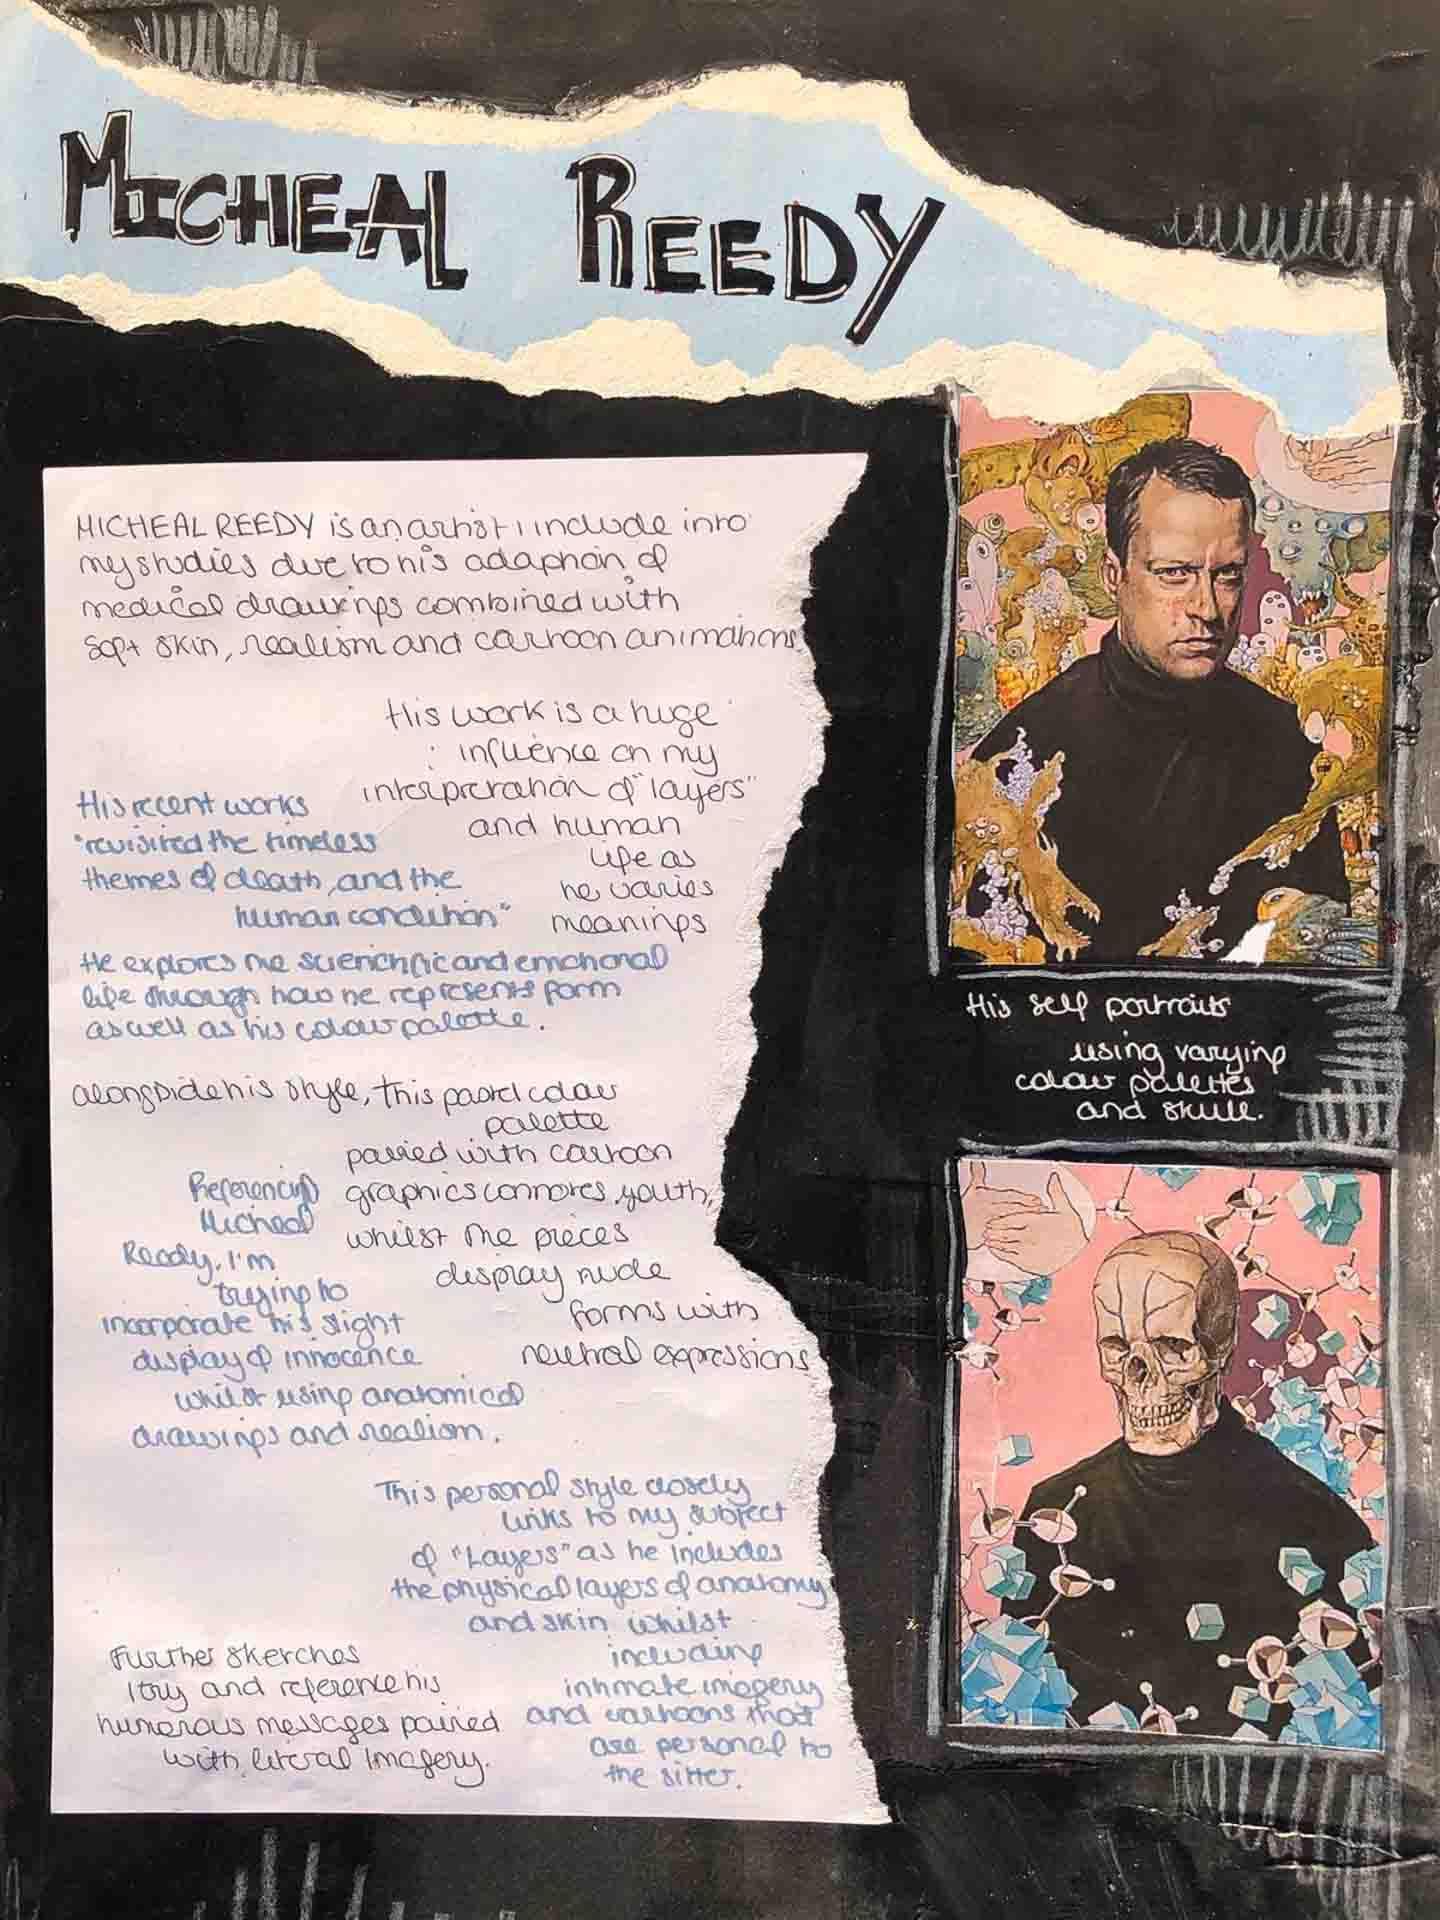 MICHEAL REEDY
MICHEAL REEDY is an artist I include into
my studies due to his adaption of
medical drawings combined with
soft skin, realism and cartoon animations.
His work is a huge
influence on my
interpretation of "layers"
and human
life as
he varies
meanings
His recent works
"revisited the timeless
themes of death, and the
human condition"
He explores the scientific and emotional
life through how he represents form
as well as his colour palette.
alongside his style, this pastel colour
palette
paired with cartoon
graphics connotes, youth,
whilst the pieces
display nude
forms with
neutral expressions
Referencing
Micheal
Reedy, I'm
trying to
incorporate his slight
display of innocence
whilst using anatomical
drawings and realism.
This personal style closely
links to my subject
of "Layers" as he includes
the physical layers of anatomy
and skin whilst
including
intimate imagery
and cartoons that
are personal to
the sitter.
Further sketches
I try and reference his
humorous messages paired
with literal Imagery.
His self portraits
using varying
colour palettes
and skull.